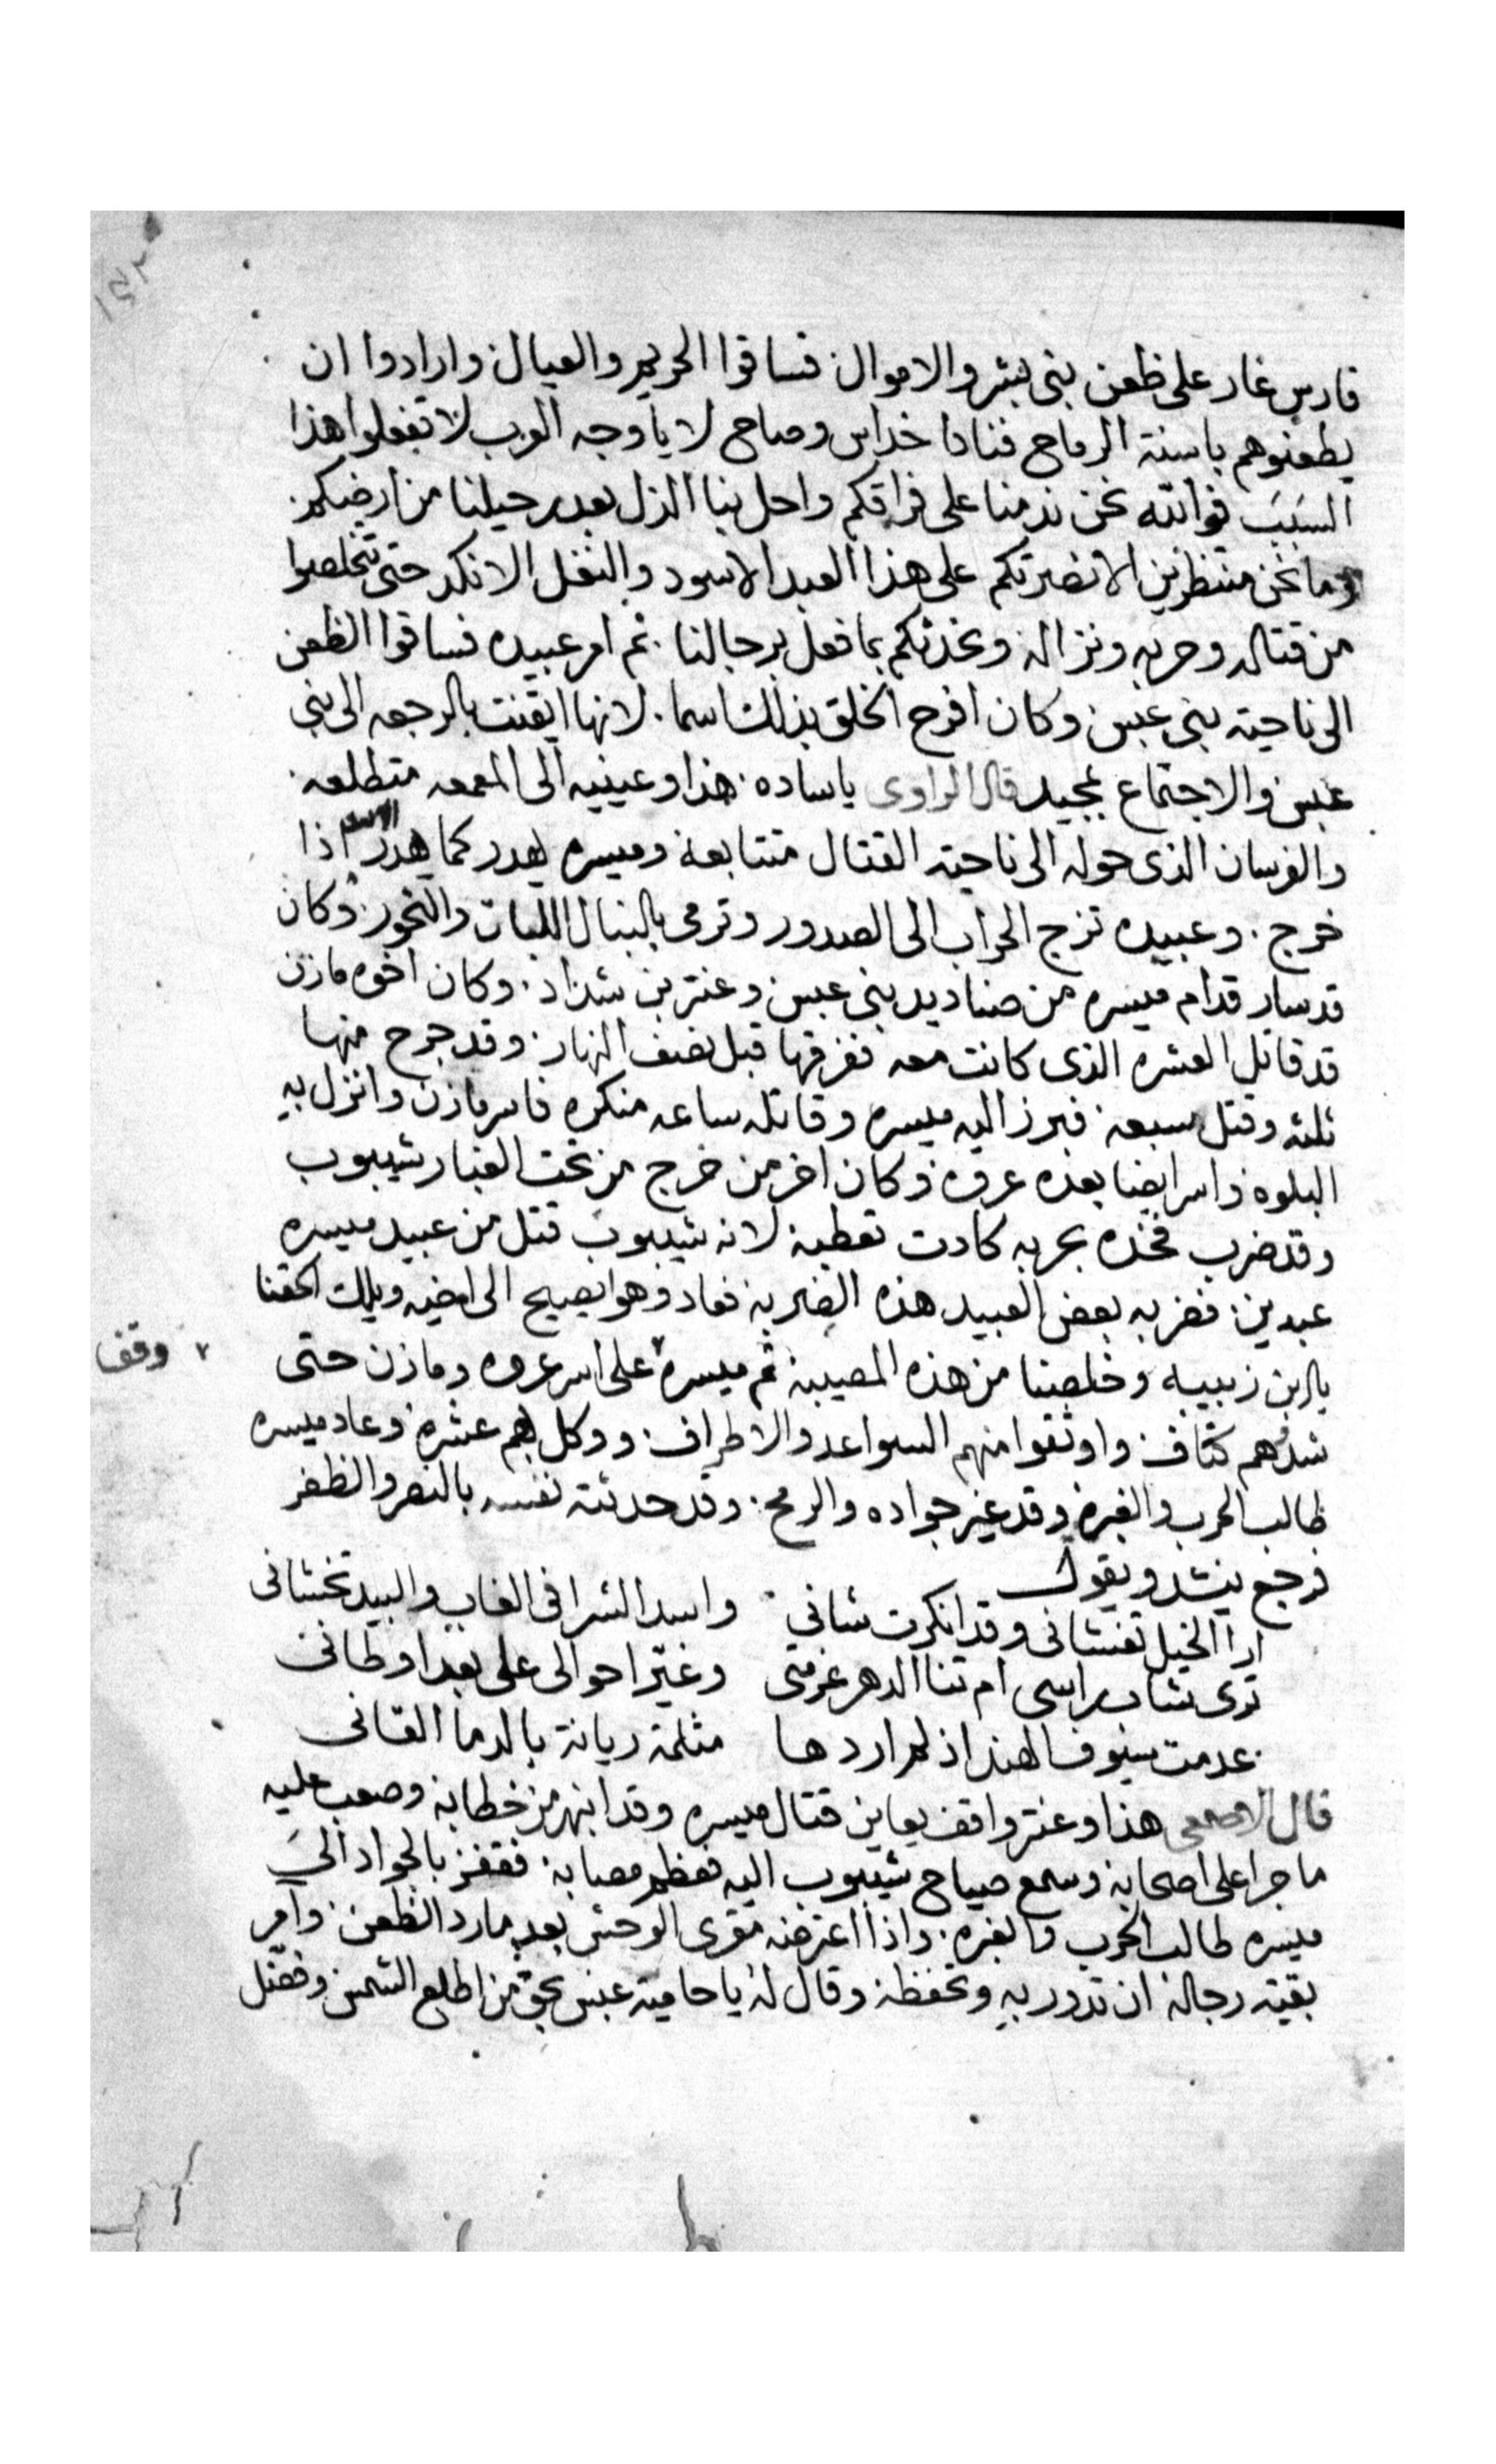 ١٤٢
فارس غار على ظعن بنى بشر والاموال فساقوا الحريم والعيال وارادوا ان
يطعنوهم باسنة الرماح فنادا خداس وصاح لا يا وجه العرب لا تفعلوا هذا
السبب فوالله نحن ندمنا على فراقكم واحل بنا الذل بعد رحيلنا من ارضكم
وما نحن منتظرين الا نصرتكم على هذا العبد الاسود والنغل الانكد حتى تتخلصوا
من قتاله وحربه ونزاله ونحدثكم بما فعل برجالنا ثم امر عبيده فساقوا الظعن
الى ناحية بنى عبس وكان افرح الخلق بذلك اسما لانها ايقنت بالرجعه الى بنى
عبس والاجتماع بمجيد قال الراوى ياساده هذا وعينيه الى المعمعه متطلعه
والفرسان الذى حوله الى ناحية القتال متتابعة وميسره يهدر كما يهدر الاسد اذا
خرج وعبيده تزج الحراب الى الصدور وترمى بالنبال اللبات والنحور وكان
قد سار قدام ميسره من صناديد بنى عبس وعنتر بن شداد وكان اخوه مازن
قد قاتل العشره الذى كانت معه ففرقها قبل نصف النهار وقد جرح منها
ثلثه وقتل سبعه فبرز اليه ميسره وقاتله ساعه منكره فاسر مازن وانزل به
البلوه واسر ايضا بعده عروه وكان اخر من خرج من تحت الغبار شيبوب
وقد ضرب فخده بحربه كادت تعطبه لانه شيبوب قتل من عبيد ميسره
عبدين فضربه بعض العبيد هذه الضربة فعاد وهوا يصيح الى اخيه ويلك الحقنا
يابن زبيبه وخلصنا من هذه المصيبة ثم ميسره على اسر عروه ومازن حتى
٧ وقف
شدهم كتاف واوثقوا منهم السواعد والاطراف ووكل بهم عشره وعاد ميسره
طالب الحرب والغبره وقد غير جواده والرمح وقد حدثته نفسه بالنصر والظفر
فرجع ينشد ويقول
ارا الخيل تغشانى وقد انكرت شانى واسد الشرا فى الغاب والبيد تخشانى
ترى شاب راسى ام تنا الدهر عزمتى وغير احوالى على بعد اوطانى
عدمت سيوف الهند اذ لم اردها مثلمة ريانة بالدما القانى
قال الاصمعى هذا وعنتر واقف يعاين قتال ميسره وقد انبهر من خطابه وصعب عليه
ما جرا على اصحابه وسمع صياح شيبوب اليه فعظم مصابه فقفز بالجواد الى
ميسره طالب الحرب والغبره واذا اعترضه مقرى الوحش بعد ما رد الظعن وامر
بقيته رجاله ان تدور به وتحفظه وقال له يا حامية عبس بحق من اطلع الشمس وفضل